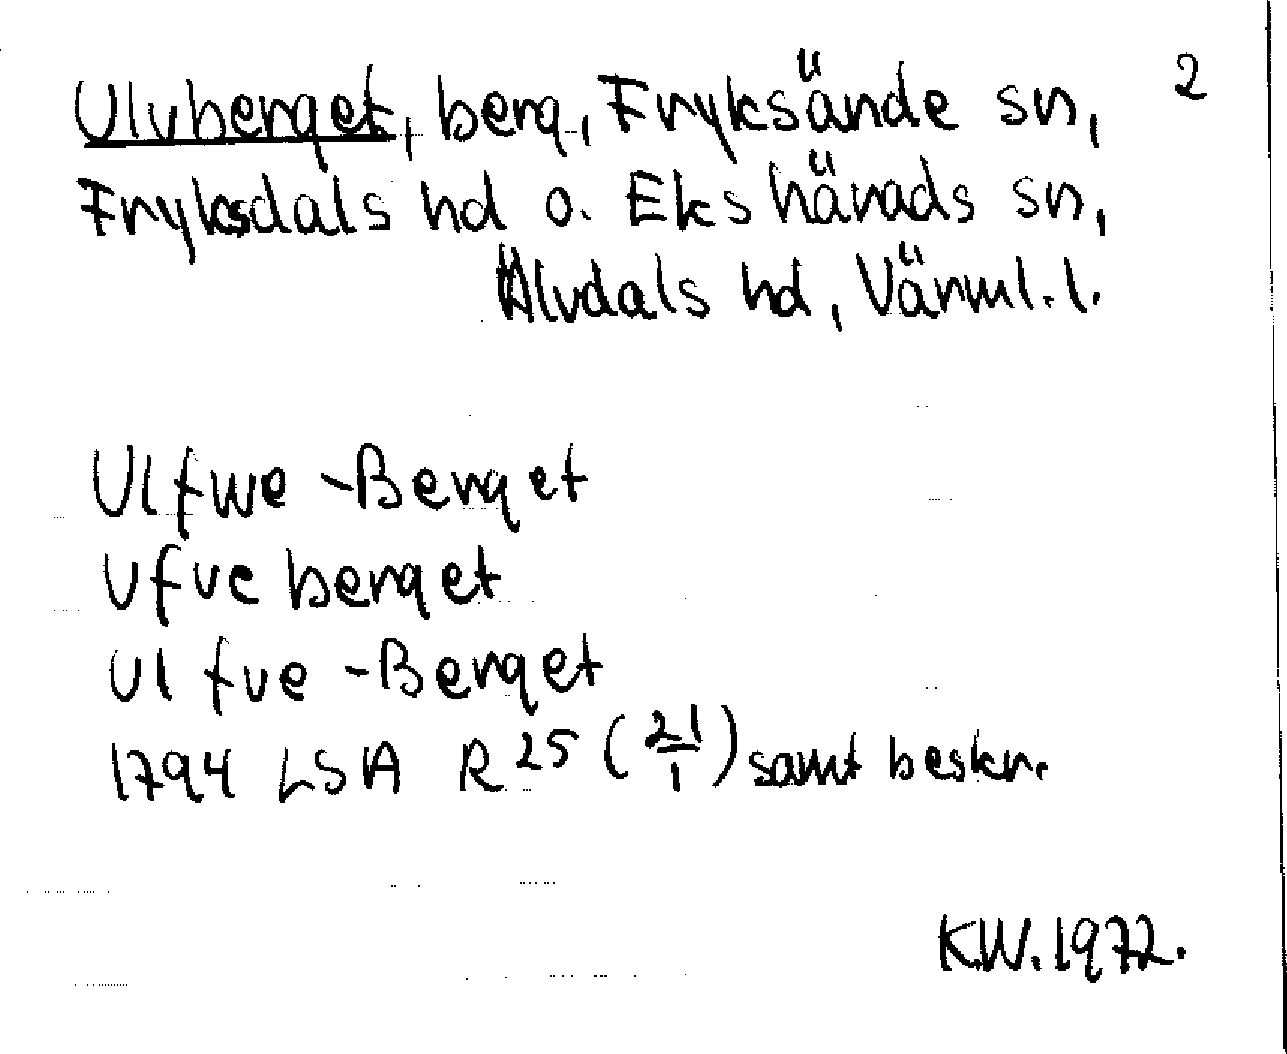 Ulvberget, berg, Fryksände sn, 2
Fryksdals hd o. Ekshärads sn,
Älvdals hd, Värml. l.
Ulfwe-Berget
Ufve berget
Ulfve-Berget
1794 LSA R 25 (21/1) samt beskr.
K.W. 1972.